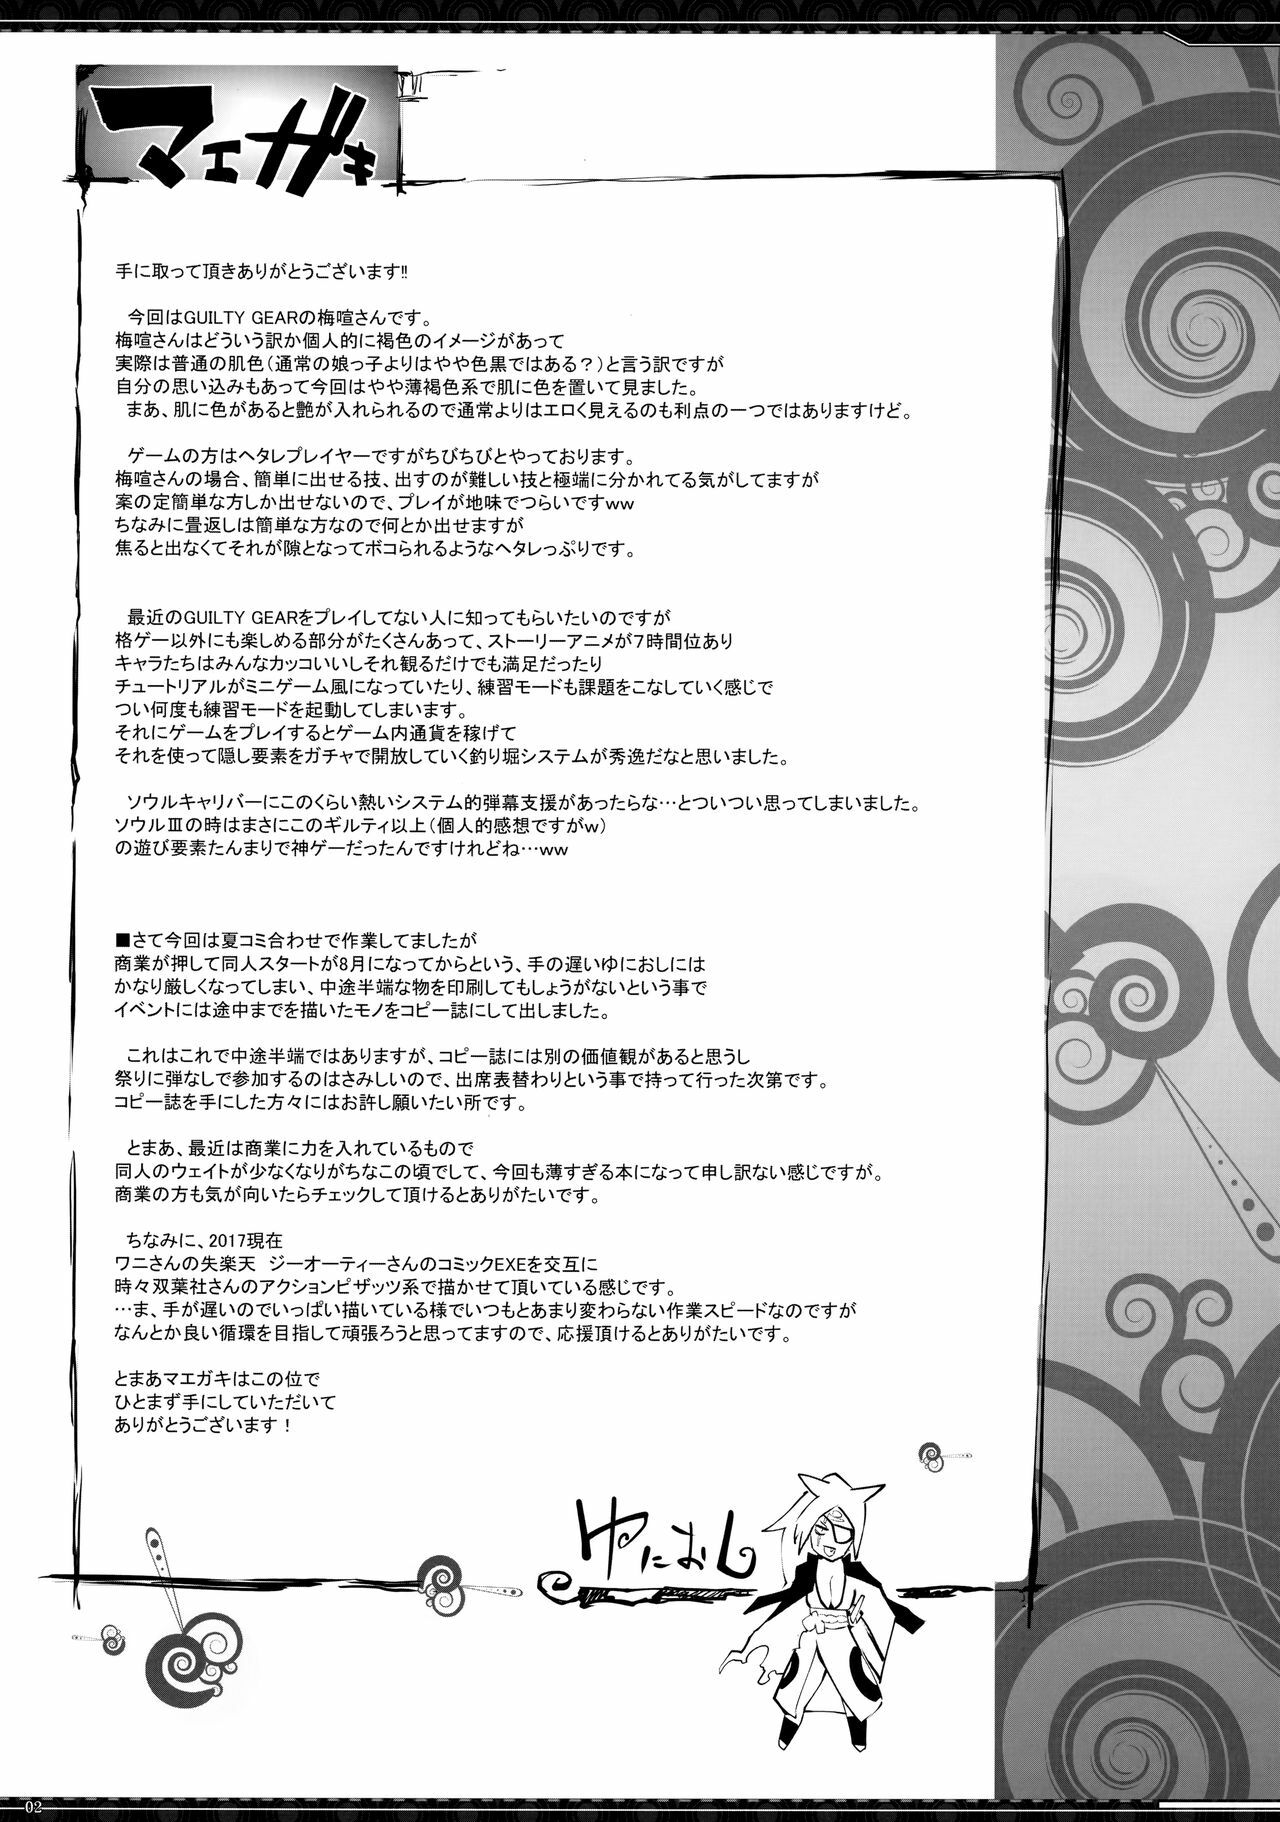 マエガキ
手に取って頂きありがとうございます!!
今回はGUILTY GEARの梅喧さんです。
梅喧さんはどういう訳か個人的に褐色のイメージがあって
実際は普通の肌色（通常の娘っ子よりはやや色黒ではある？）と言う訳ですが
自分の思い込みもあって今回はやや薄褐色系で肌に色を置いて見ました。
まあ、肌に色があると艶が入れられるので通常よりはエロく見えるのも利点の一つではありますけど。
ゲームの方はヘタレプレイヤーですがちびちびとやっております。
梅喧さんの場合、簡単に出せる技、出すのが難しい技と極端に分かれてる気がしてますが
案の定簡単な方しか出せないので、プレイが地味でつらいですww
ちなみに畳返しは簡単な方なので何とか出せますが
焦ると出なくてそれが隙となってボコられるようなヘタレっぷりです。
最近のGUILTY GEARをプレイしてない人に知ってもらいたいのですが
格ゲー以外にも楽しめる部分がたくさんあって、ストーリーアニメが７時間位あり
キャラたちはみんなカッコいいしそれ観るだけでも満足だったり
チュートリアルがミニゲーム風になっていたり、練習モードも課題をこなしていく感じで
つい何度も練習モードを起動してしまいます。
それにゲームをプレイするとゲーム内通貨を稼げて
それを使って隠し要素をガチャで開放していく釣り堀システムが秀逸だなと思いました。
ソウルキャリバーにこのくらい熱いシステム的弾幕支援があったらな…とついつい思ってしまいました。
ソウルⅢの時はまさにこのギルティ以上（個人的感想ですがw）
の遊び要素たんまりで神ゲーだったんですけれどね…ww
■さて今回は夏コミ合わせで作業してましたが
商業が押して同人スタートが8月になってからという、手の遅いゆにおしには
かなり厳しくなってしまい、中途半端な物を印刷してもしょうがないという事で
イベントには途中までを描いたモノをコピー誌にして出しました。
これはこれで中途半端ではありますが、コピー誌には別の価値観があると思うし
祭りに弾なしで参加するのはさみしいので、出席表替わりという事で持って行った次第です。
コピー誌を手にした方々にはお許し願いたい所です。
とまあ、最近は商業に力を入れているもので
同人のウェイトが少なくなりがちなこの頃でして、今回も薄すぎる本になって申し訳ない感じですが。
商業の方も気が向いたらチェックして頂けるとありがたいです。
ちなみに、2017現在
ワニさんの失楽天　ジーオーティーさんのコミックEXEを交互に
時々双葉社さんのアクションピザッツ系で描かせて頂いている感じです。
…ま、手が遅いのでいっぱい描いている様でいつもとあまり変わらない作業スピードなのですが
なんとか良い循環を目指して頑張ろうと思ってますので、応援頂けるとありがたいです。
とまあマエガキはこの位で
ひとまず手にしていただいて
ありがとうございます！
ゆにおし
02